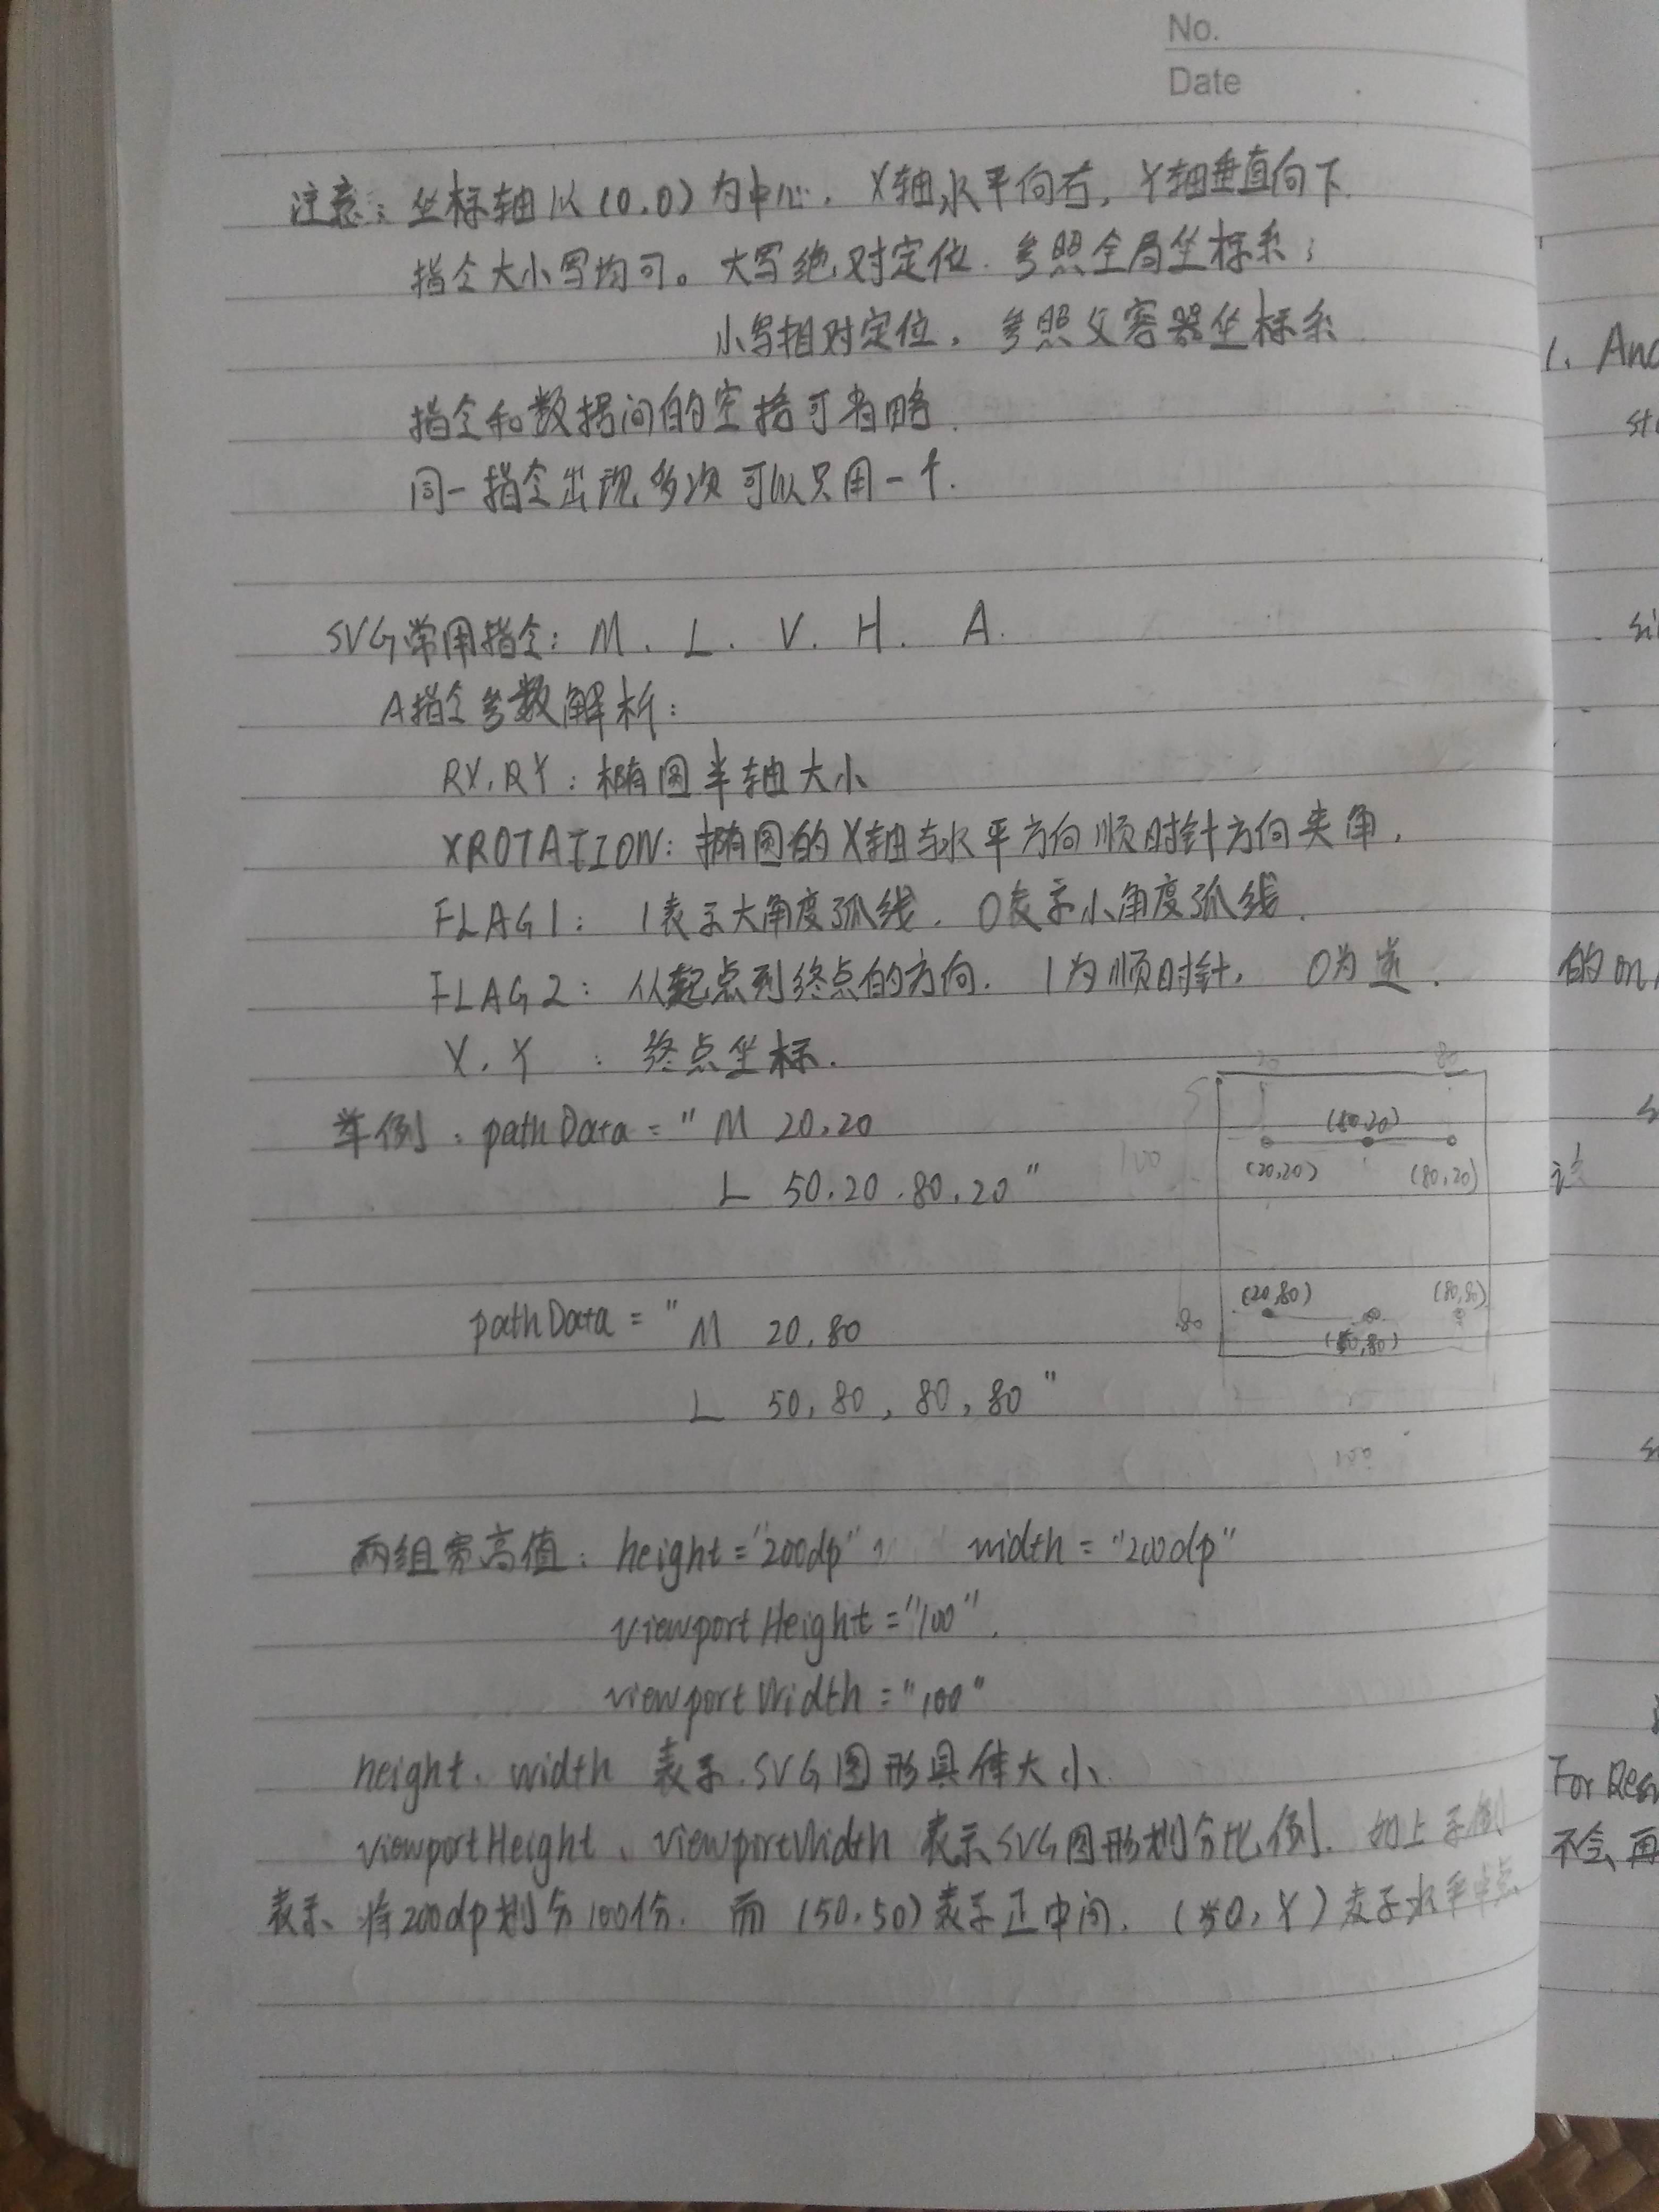 No.
Date
注意：坐标轴以(0,0)为中心，X轴水平向右，Y轴垂直向下.
指令大小写均可。大写绝对定位，参照全局坐标系；
小写相对定位，参照父容器坐标系
指令和数据间的空格可省略.
同一指令出现多次可以只用一个.
SVG常用指令：M、L、V、H、A.
A指令参数解析：
RX,RY：椭圆半轴大小
XROTATION：椭圆的X轴与水平方向顺时针方向夹角，
FLAG1：1表示大角度弧线，0表示小角度弧线.
FLAG2：从起点到终点的方向，1为顺时针，0为逆.
X,Y：终点坐标.
举例：pathData="M 20,20
L 50,20,80,20"
20
80
100
(20,20)
(80,20)
(20,80)
(80,80)
80
100
pathData="M 20,80
L 50,80,80,80"
两组宽高值：height="200dp" width="200dp"
viewportHeight="100".
viewportWidth="100"
height、width 表示SVG图形具体大小
viewportHeight、viewportWidth 表示SVG图形划分比例. 如上示例
表示、将200dp划分100份. 而(50,50)表示正中间. (50,Y)表示水平中点
1. And
的on
For Res
不会再